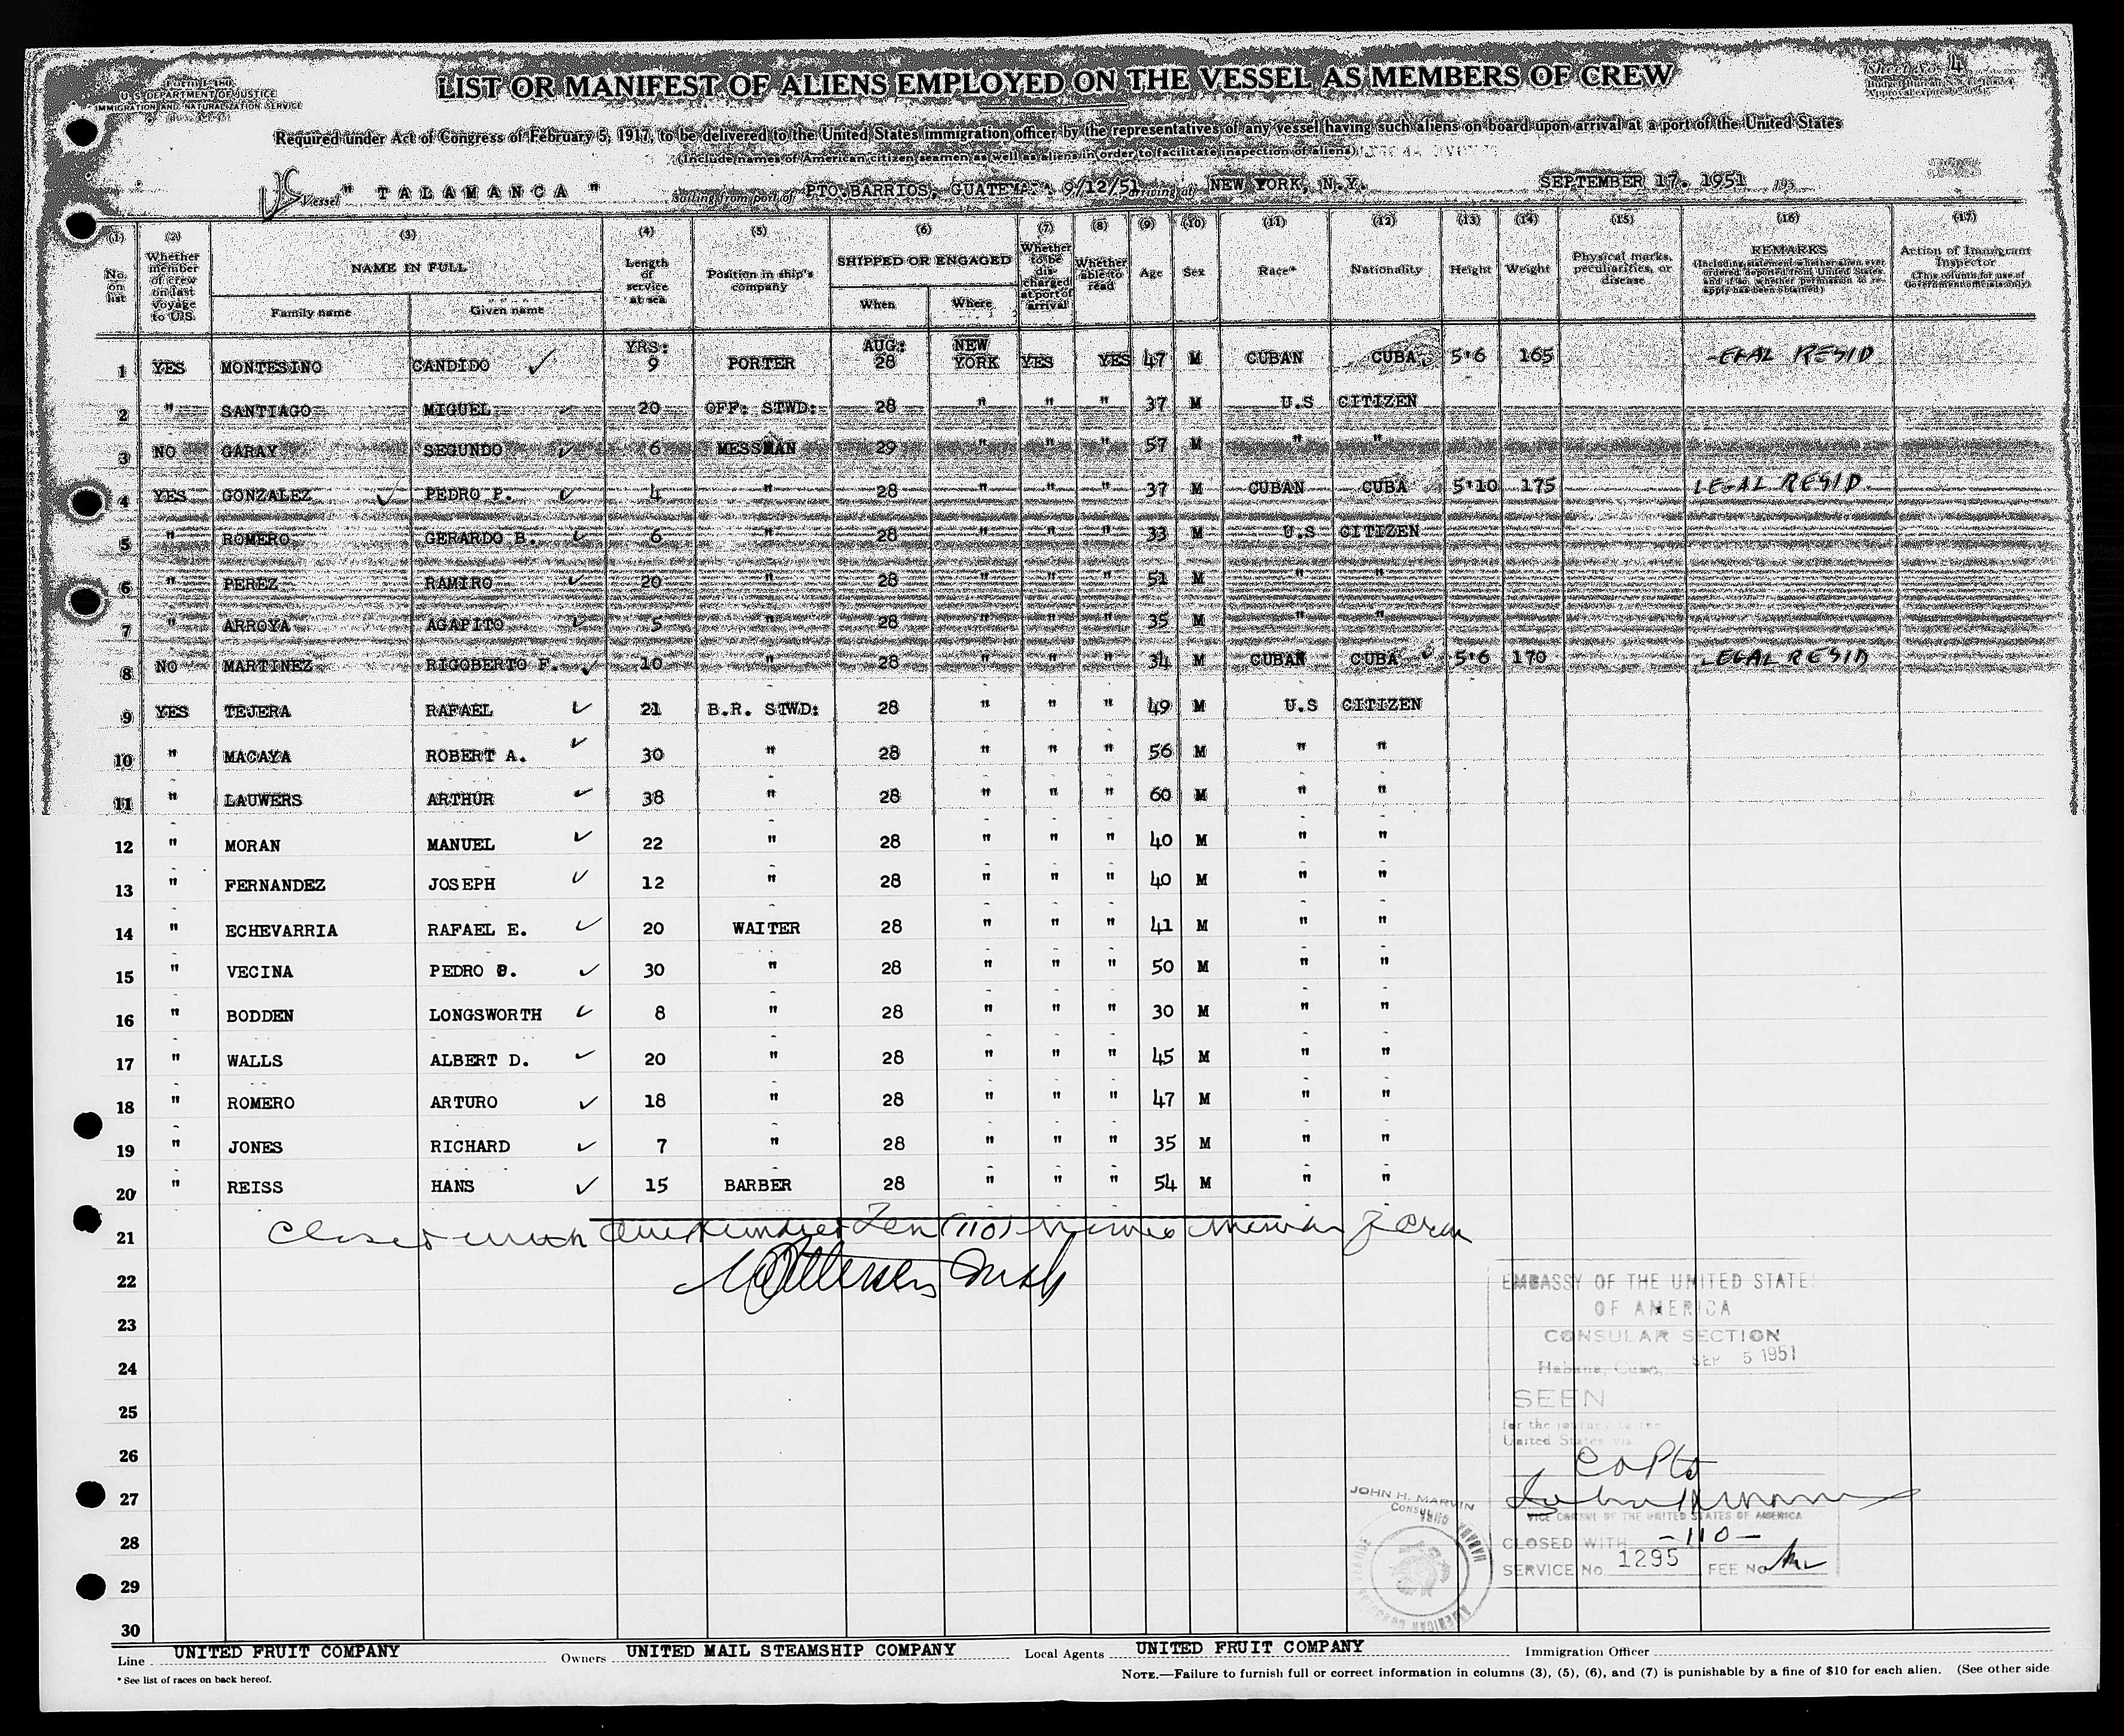 U. S. DEPARTMENT OF JUSTICE
IMMIGRATION AND NATURALIZATION SERVICE
LIST OR MANIFEST OF ALIENS EMPLOYED ON THE VESSEL AS MEMBERS OF CREW
Sheet No. 4
Required under Act of Congress of February 5, 1917, to be delivered to the United States immigration officer by the representatives of any vessel having such aliens on board upon arrival at a port of the United States
(Include names of American citizen seamen as well as aliens in order to facilitate inspection of aliens)
US Vessel " TALAMANCA " Sailing from port of PTO.BARRIOS, GUATEMALA 9/12/51 arriving at NEW YORK, N.Y. SEPTEMBER 17. 1951 195
(1) (2) (3) (4) (5) (6) (7) (8) (9) (10) (11) (12) (13) (14) (15) (16) (17)
No. on list Whether member of crew on last voyage to U.S. NAME IN FULL Family name Given name Length of service at sea Position in ship's company SHIPPED OR ENGAGED When Where Whether to be discharged at port of arrival Whether able to read Age Sex Race* Nationality Height Weight Physical marks, peculiarities, or disease REMARKS (Including statement whether alien ever ordered deported from United States and if so, whether permission to reapply has been obtained) Action of Immigrant Inspector (This column for use of Government officials only)
YRS: AUG: NEW
1 YES MONTESINO CANDIDO ✓ 9 PORTER 28 YORK YES YES 47 M CUBAN CUBA 5'6 165 LEGAL RESID
2 " SANTIAGO MIGUEL ✓ 20 OFF: STWD: 28 " " " 37 M U.S CITIZEN
3 NO GARAY SEGUNDO ✓ 6 MESSMAN 29 " " " 57 M " "
4 YES GONZALEZ ✓ PEDRO P. ✓ 4 " 28 " " " 37 M CUBAN CUBA 5'10 175 LEGAL RESID.
5 " ROMERO GERARDO B. ✓ 6 " 28 " " " 33 M U.S CITIZEN
6 " PEREZ RAMIRO ✓ 20 " 28 " " " 51 M " "
7 " ARROYA AGAPITO ✓ 5 " 28 " " " 35 M " "
8 NO MARTINEZ RIGOBERTO F. ✓ 10 " 28 " " " 34 M CUBAN CUBA ✓ 5'6 170 LEGAL RESID
9 YES TEJERA RAFAEL ✓ 21 B.R. STWD: 28 " " " 49 M U.S CITIZEN
10 " MACAYA ROBERT A. ✓ 30 " 28 " " " 56 M " "
11 " LAUWERS ARTHUR ✓ 38 " 28 " " " 60 M " "
12 " MORAN MANUEL ✓ 22 " 28 " " " 40 M " "
13 " FERNANDEZ JOSEPH ✓ 12 " 28 " " " 40 M " "
14 " ECHEVARRIA RAFAEL E. ✓ 20 WAITER 28 " " " 41 M " "
15 " VECINA PEDRO ✓ 30 " 28 " " " 50 M " "
16 " BODDEN LONGSWORTH ✓ 8 " 28 " " " 30 M " "
17 " WALLS ALBERT D. ✓ 20 " 28 " " " 45 M " "
18 " ROMERO ARTURO ✓ 18 " 28 " " " 47 M " "
19 " JONES RICHARD ✓ 7 " 28 " " " 35 M " "
20 " REISS HANS ✓ 15 BARBER 28 " " " 54 M " "
21 Closed with One Hundred Ten (110) Names Members of Crew
22
23
24
25
26
27
28
29
30
EMBASSY OF THE UNITED STATES
OF AMERICA
CONSULAR SECTION
Habana, Cuba, SEP 5 1951
SEEN
for the journey to the
United States via
JOHN H. MARVIN
CONSUL
VICE CONSUL OF THE UNITED STATES OF AMERICA
CLOSED WITH -110-
SERVICE No. 1295 FEE No
Line UNITED FRUIT COMPANY Owners UNITED MAIL STEAMSHIP COMPANY Local Agents UNITED FRUIT COMPANY Immigration Officer
* See list of races on back hereof.
NOTE.—Failure to furnish full or correct information in columns (3), (5), (6), and (7) is punishable by a fine of $10 for each alien. (See other side